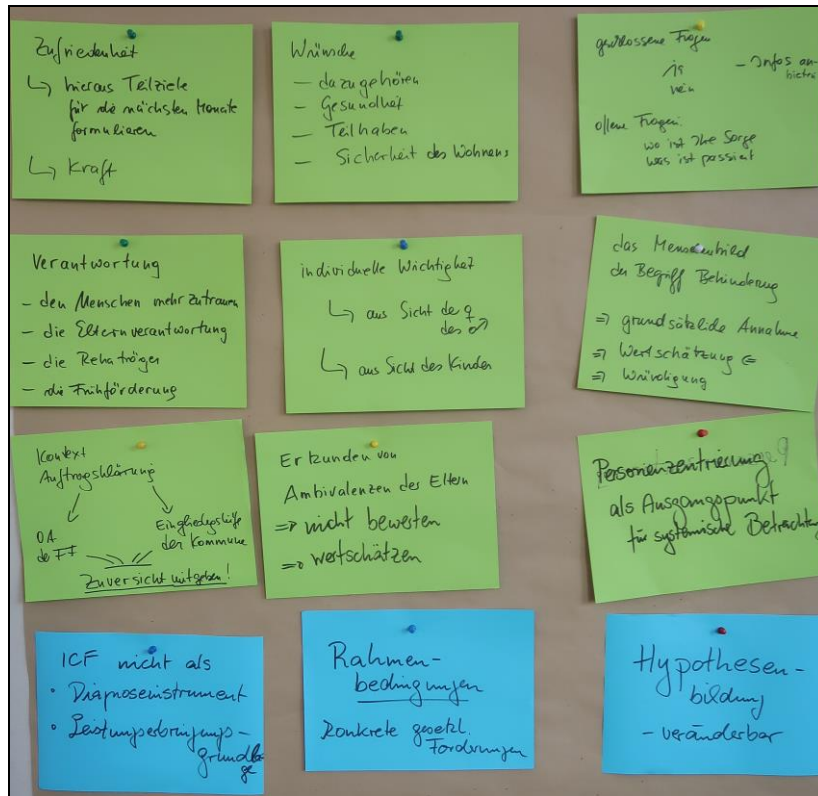 Zufriedenheit
↳ hieraus Teilziele
für die nächsten Monate
formulieren
↳ Kraft
Wünsche
– dazugehören
– Gesundheit
– Teilhaben
– Sicherheit des Wohnens
geschlossene Fragen
ja
nein
– Infos an-
bieten
offene Fragen:
wo ist Ihre Sorge
was ist passiert
Verantwortung
– den Menschen mehr zutrauen
– die Elternverantwortung
– die Rehaträger
– die Frühförderung
individuelle Wichtigkeit
↳ aus Sicht der ♀
des ♂
↳ aus Sicht des Kindes
das Menschenbild
der Begriff Behinderung
⇒ grundsätzliche Annahme
⇒ Wertschätzung ⇐
⇒ Würdigung
Kontext
Auftragsklärung
OA
der FF
Eingliederungshilfe
der Kommune
Zuversicht mitgeben!
Erkunden von
Ambivalenzen der Eltern
⇒ nicht bewerten
⇒ wertschätzen
Personenzentrierung
als Ausgangspunkt
für systemische Betrachtung
ICF nicht als
• Diagnoseinstrument
• Leistungserbringungs-
grundlage
Rahmen-
bedingungen
Konkrete gesetzl.
Forderungen
Hypothesen-
bildung
– veränderbar